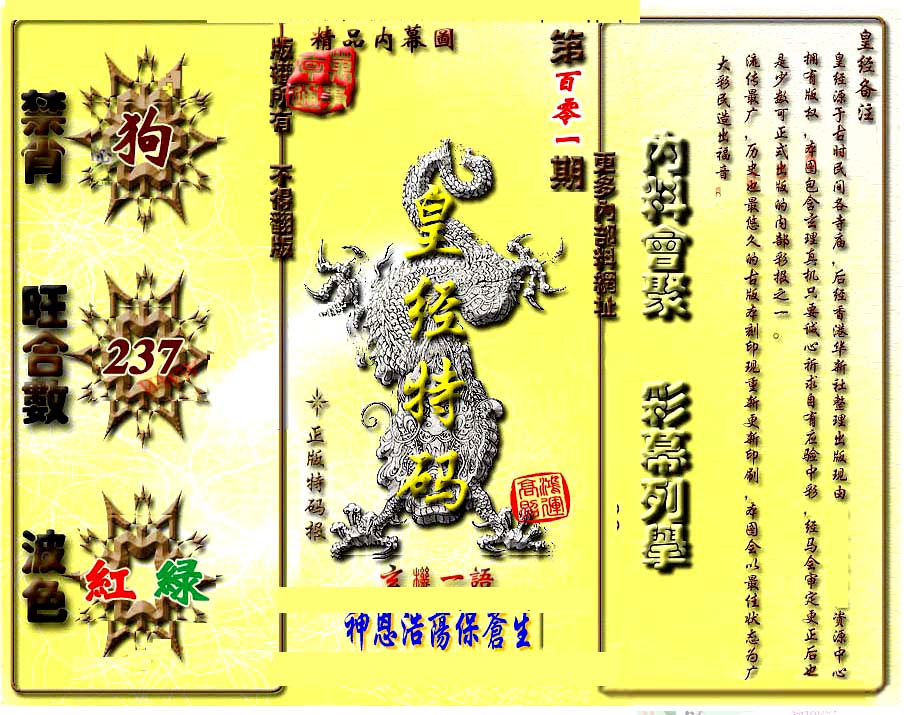 精品内幕圖
第百零一期
版權所有 不得翻版
更多內部料網址
禁肖
狗
旺合數
237
波色
紅 綠
皇经特码
正版特码报
鴻運高照
玄機一語
神恩浩陽保蒼生
内料會聚
彩幕列舉
皇经备注
皇经源于古时民间各寺庙,后经香港华新社整理出版现由 资源中心
拥有版权,本图包含玄理真机只要诚心祈求自有应验中彩,经马会审定更正后也
是少数可正式出版的内部彩报之一。
流传最广,历史也最悠久的古版本刻印现重新更新印刷,本图会以最佳状态为广
大彩民造出福音